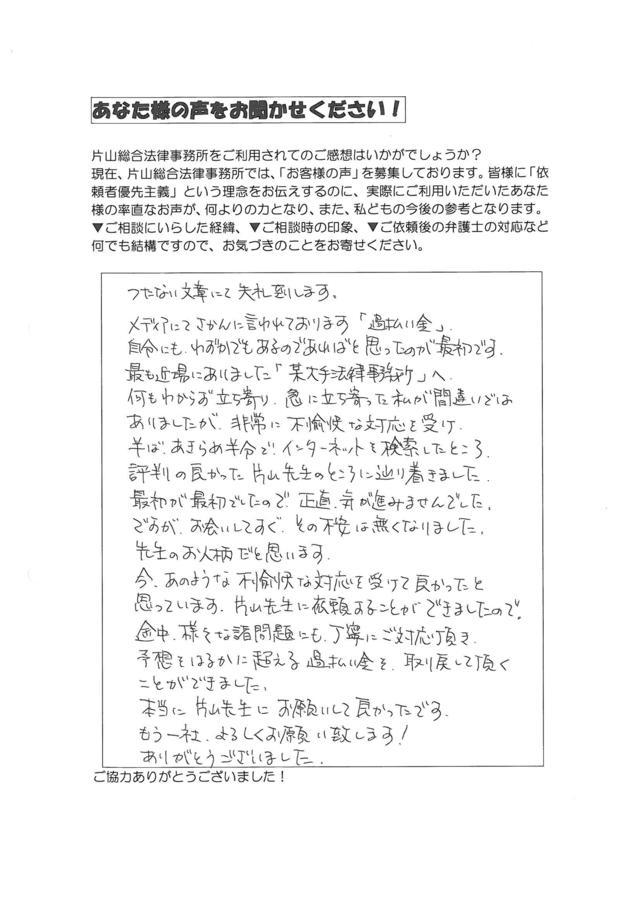 あなた様の声をお聞かせください！
片山総合法律事務所をご利用されてのご感想はいかがでしょうか？
現在、片山総合法律事務所では、「お客様の声」を募集しております。皆様に「依
頼者優先主義」という理念をお伝えするのに、実際にご利用いただいたあなた
様の率直なお声が、何よりの力となり、また、私どもの今後の参考となります。
▼ご相談にいらした経緯、▼ご相談時の印象、▼ご依頼後の弁護士の対応など
何でも結構ですので、お気づきのことをお寄せください。
つたない文章にて失礼致します。
メディアにてさかんに言われております「過払い金」.
自分にも、わずかでもあるのであればと思ったのが最初です.
最も近場にありました「某大手法律事務所」へ.
何もわからず立ち寄り、急に立ち寄った私が間違いでは
ありましたが、非常に不愉快な対応を受け.
半ば、あきらめ半分で、インターネットを検索したところ.
評判の良かった片山先生のところに辿り着きました.
最初が最初でしたので、正直、気が進みませんでした.
ですが、お会いしてすぐ、その不安は無くなりました.
先生のお人柄だと思います.
今、あのような不愉快な対応を受けて良かったと
思っています.片山先生に依頼することができましたので.
途中、様々な諸問題にも、丁寧にご対応頂き.
予想をはるかに超える過払い金を、取り戻して頂く
ことができました.
本当に片山先生にお願いして良かったです.
もう一社、よろしくお願い致します！
ありがとうございました.
ご協力ありがとうございました！